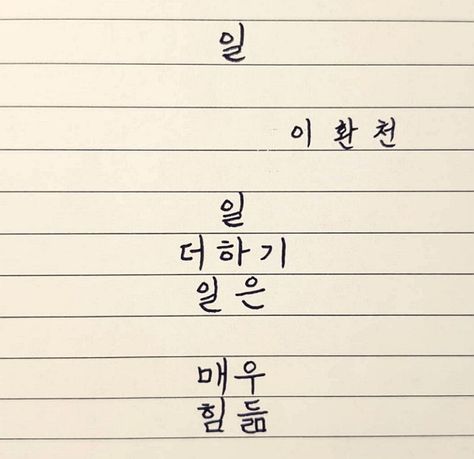 일
이환천
일
더하기
일은
매우
힘듦